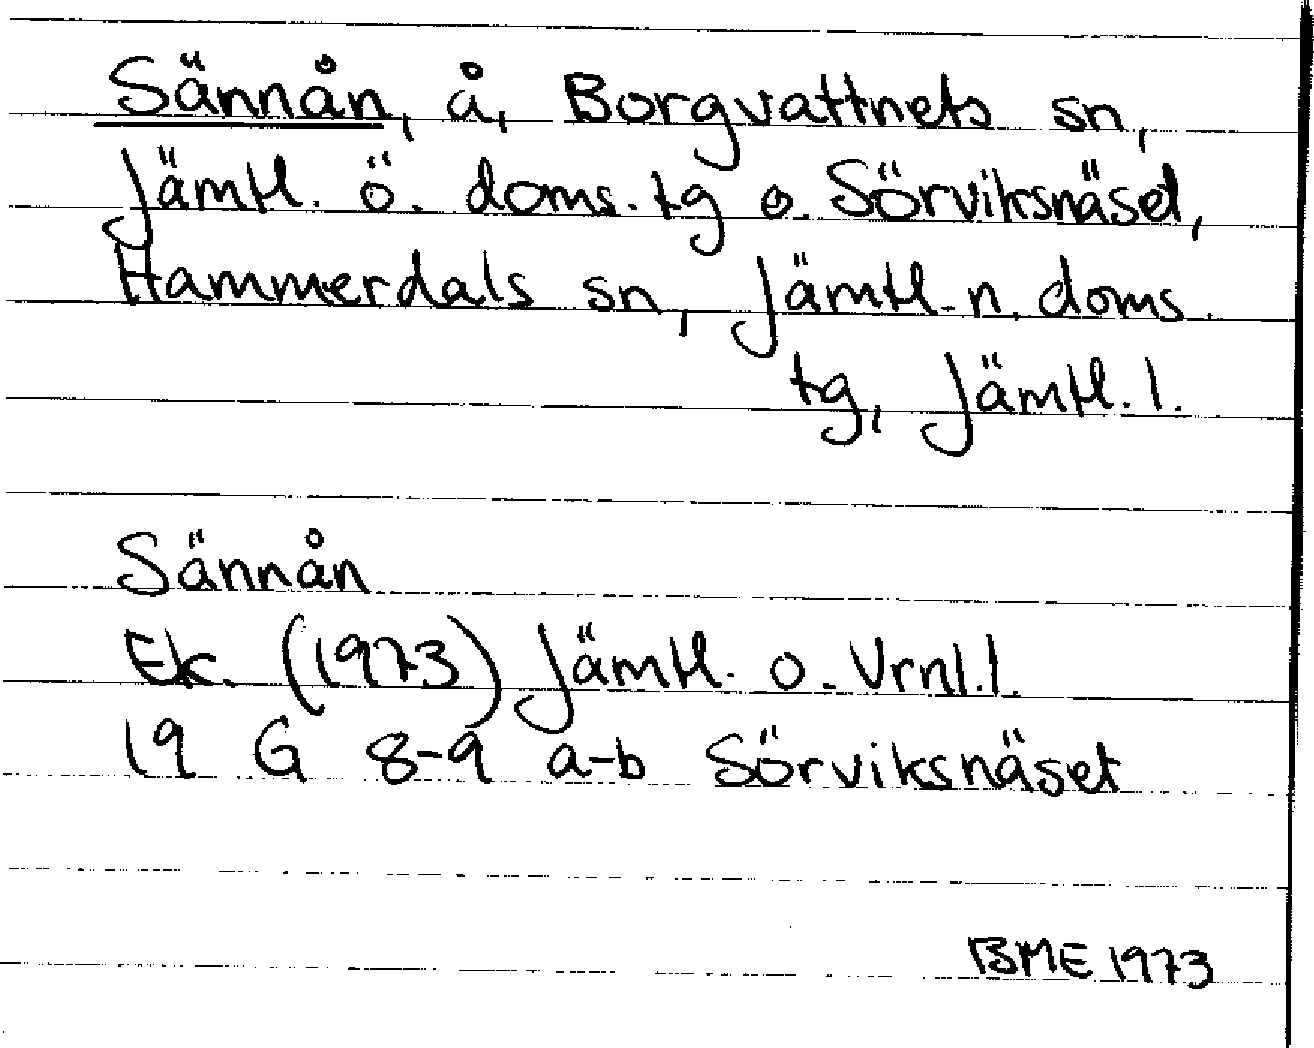 Sännån, å, Borgvattnets sn,
Jämtl. ö. doms. tg o. Sörviksnäset,
Hammerdals sn, Jämtl. n. doms.
tg, Jämtl. l.
Sännån
Ek. (1973) Jämtl. o. Vrnl. l.
19 G 8-9 a-b Sörviksnäset
BME 1973